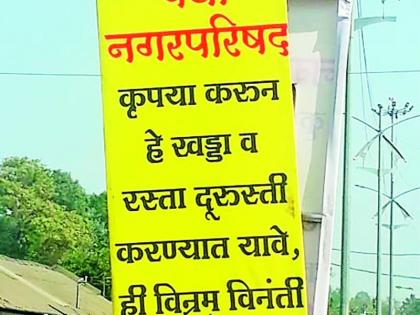 नगरपरिषद
कृपया करून
हे खड्डा व
रस्ता दूरुस्ती
करण्यात यावे,
ही विनम्र विनंती